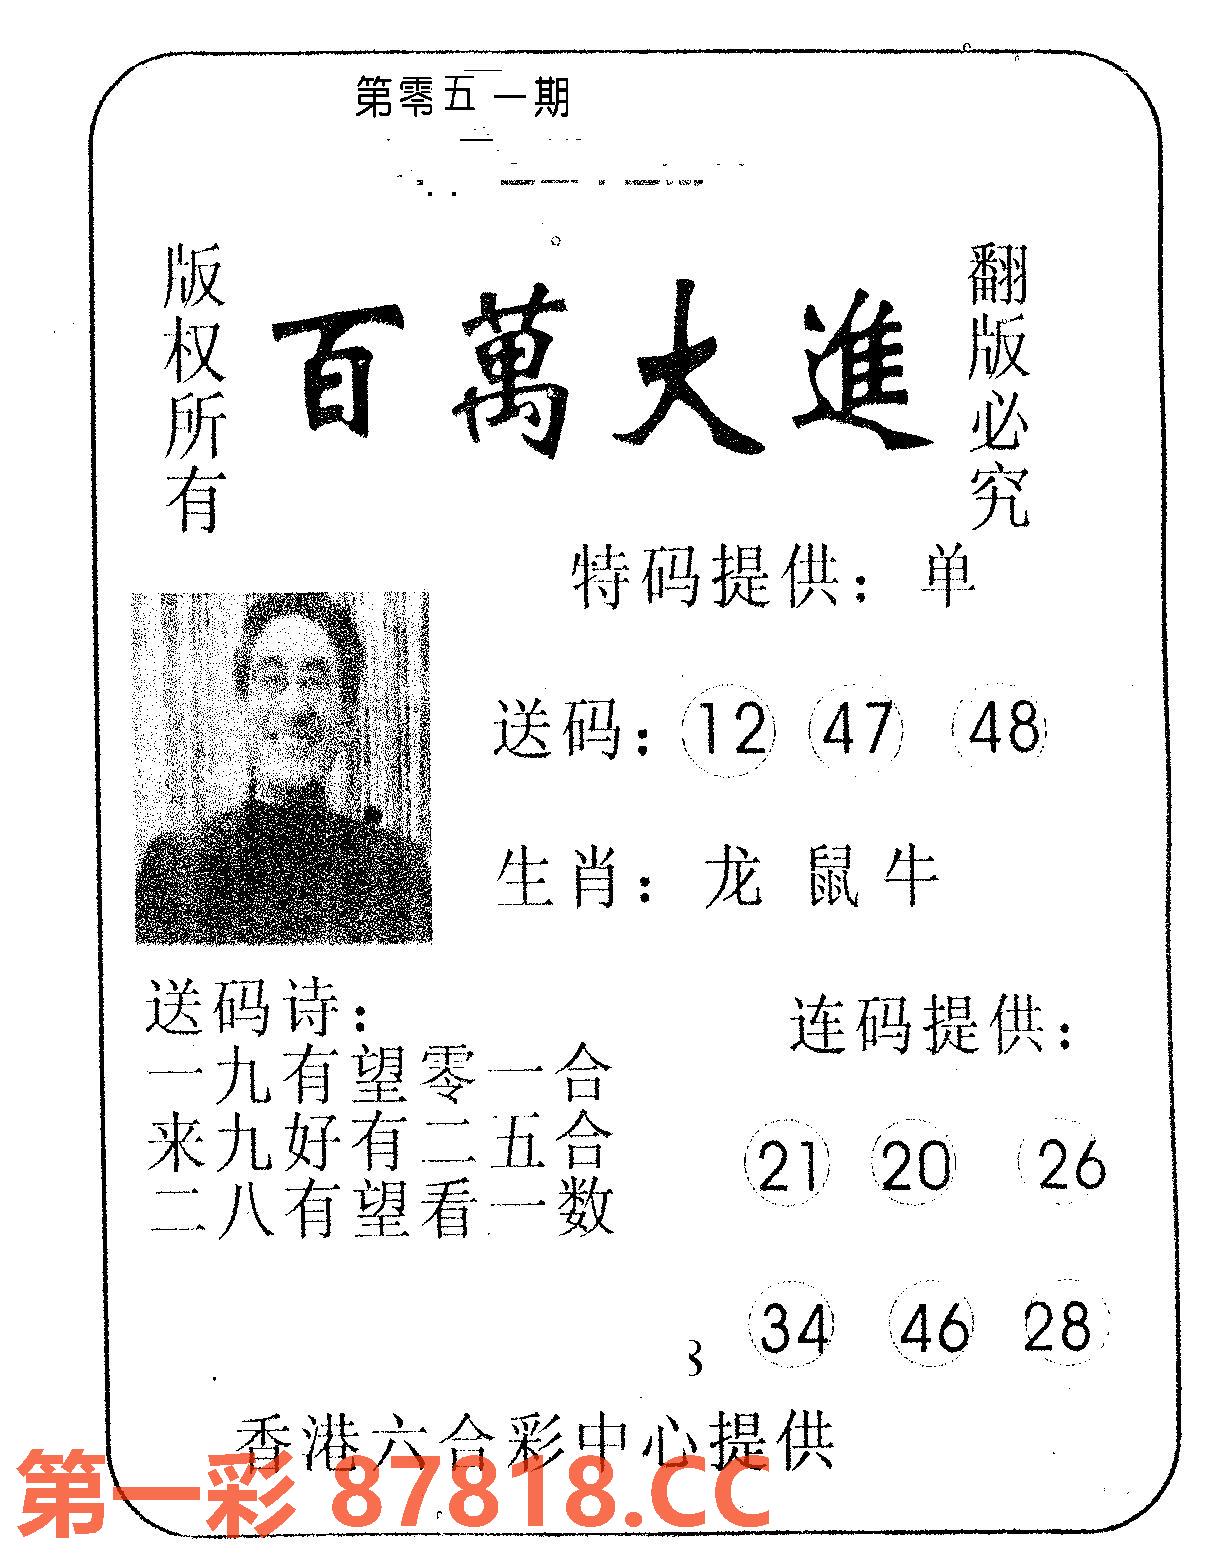 第零五一期
版权所有
百萬大進
翻版必究
特码提供：单
送码：12 47 48
生肖：龙 鼠 牛
送码诗：
一九有望零一合
来九好有二五合
二八有望看一数
连码提供：
21 20 26
34 46 28
香港六合彩中心提供
第一彩 87818.CC